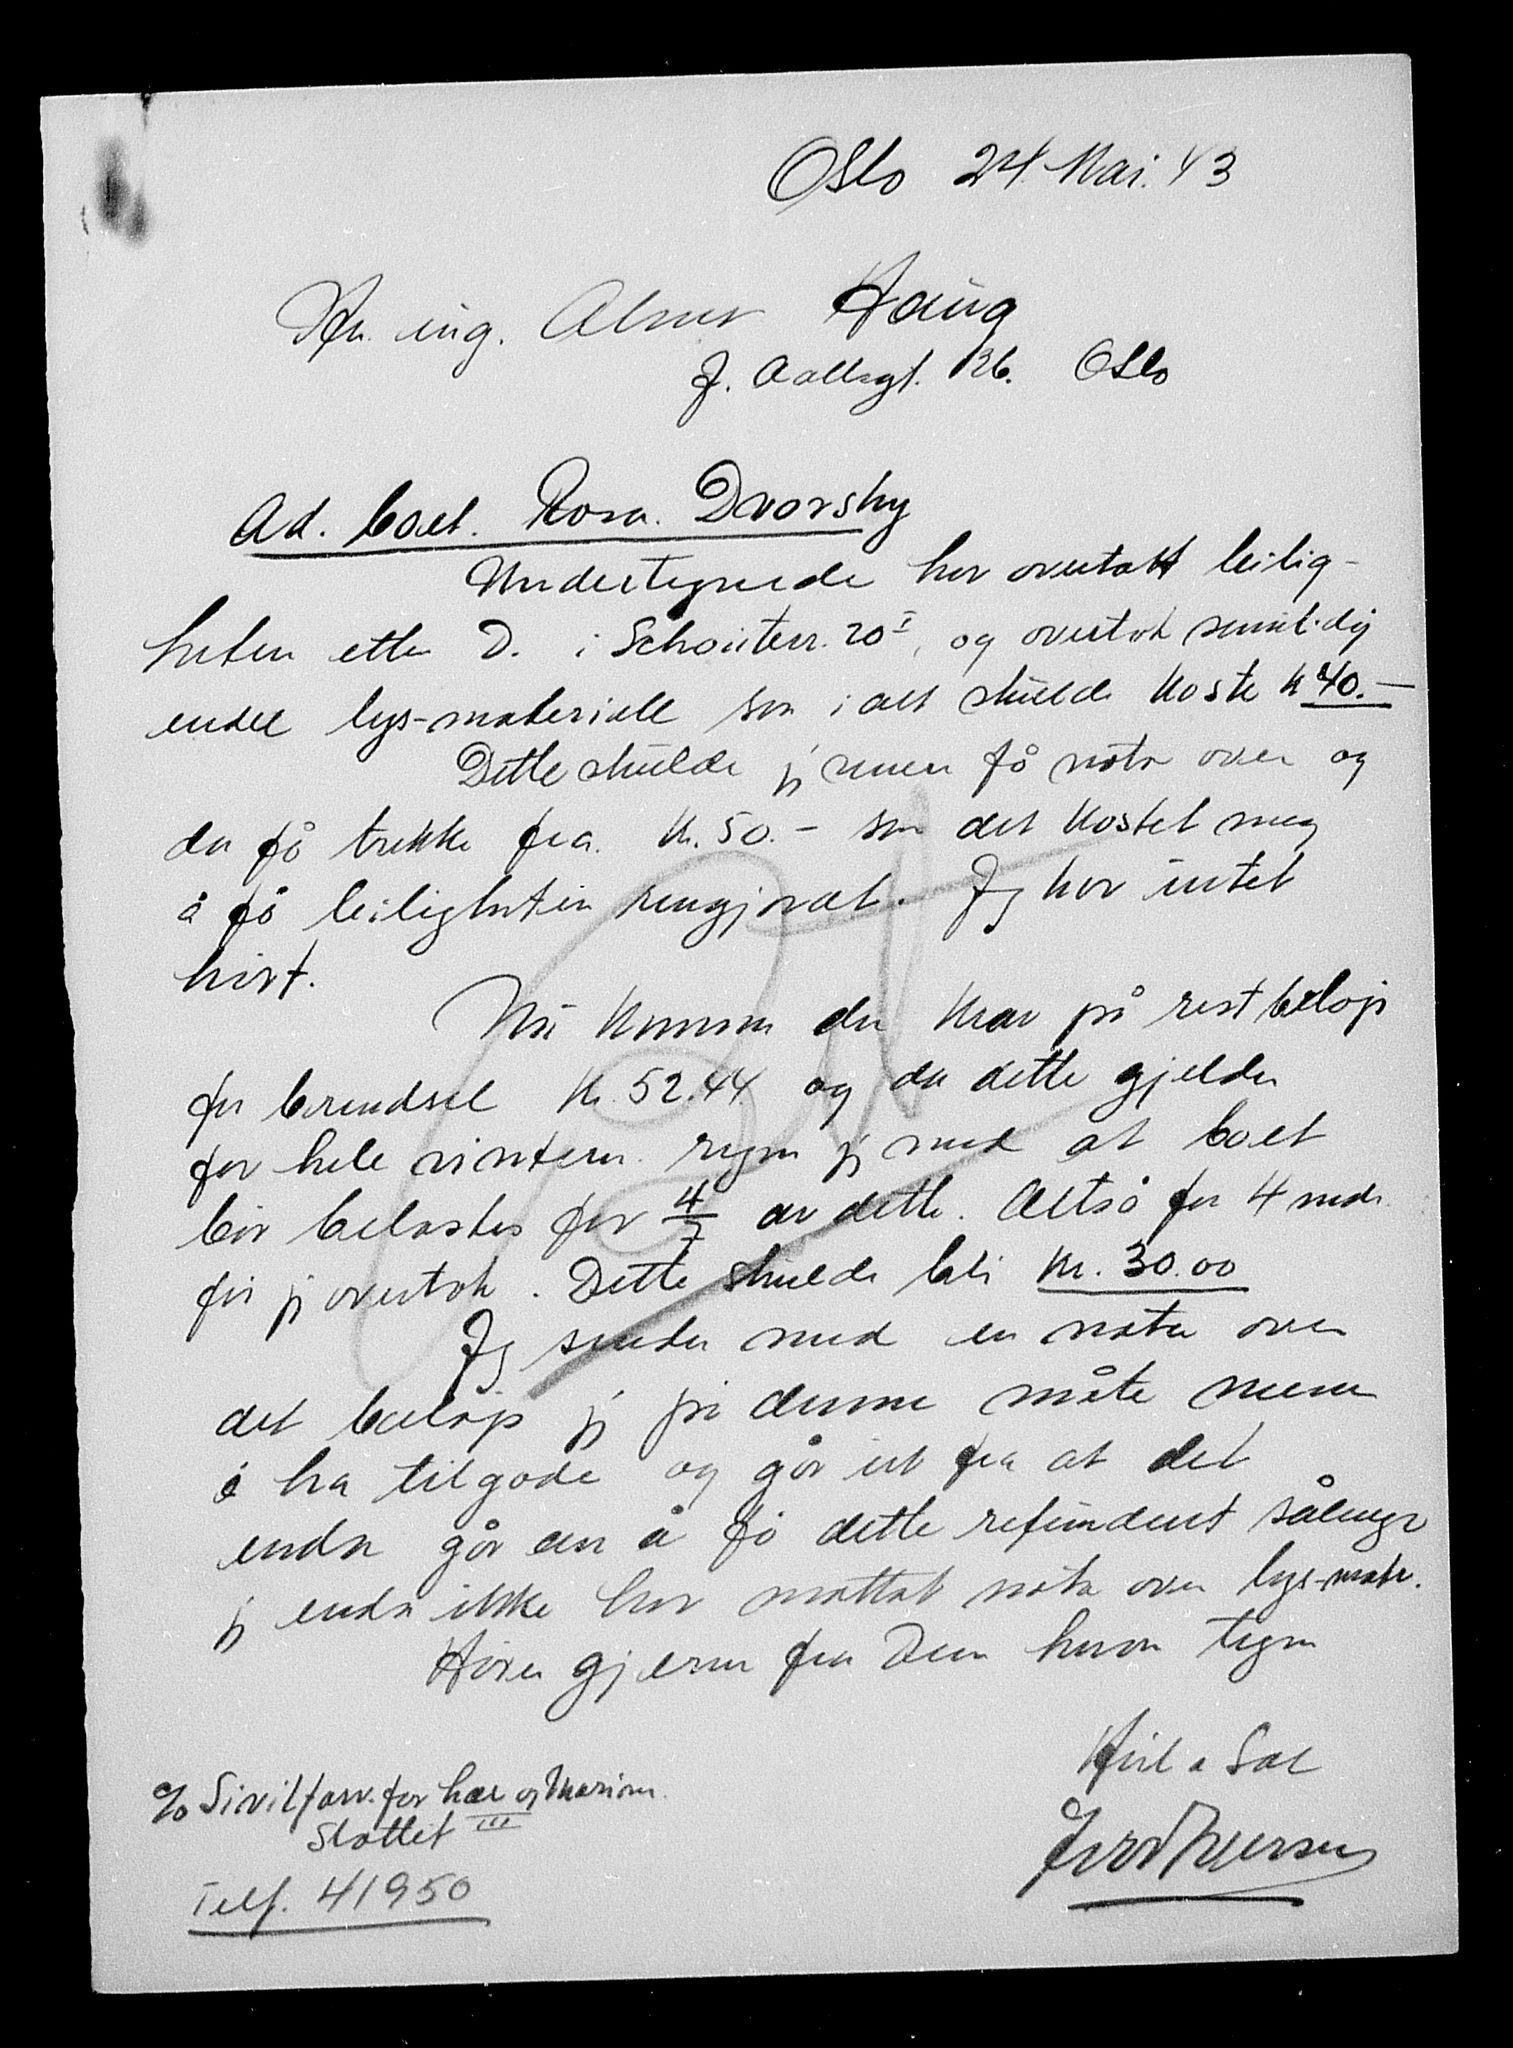 Oslo 24. Mai. 43
Hr. ing. Almar Haug
J. Aallsgt. 26. Oslo
Ad. boet. Rosa. Dvorsky
Undertegnede har overtatt leilig-
heten etter D. i Schouterr. 20 I, og overtok samtidig
endel lys-materiell som i alt skulde koste kr 40.-
Dette skulde jeg minnes få nota over og
da få trekke fra. kr. 50.- som det kostet meg
å få leiligheten rengjort. Jeg har intet
hørt.
Nu kommer der krav på restbeløp
for brendsel kr. 52.44. og da dette gjelder
for hele vinteren. regner jeg med at boet
bør belastes for 4/7 av dette. Altså for 4 mndr
før jeg overtok. Dette skulde bli kr. 30.00
Jeg sender med en nota over
det beløp jeg på denne måte mener
å ha tilgode og går ut fra at det
enda går an å få dette refundert sålenge
jeg enda ikke har mottatt nota over lys-matr.
Hører gjerne fra Dem herom tegner
Heil a Sæl
c/o Sivilforv. for hær og Marinen.
Slottet III
Telf. 41950